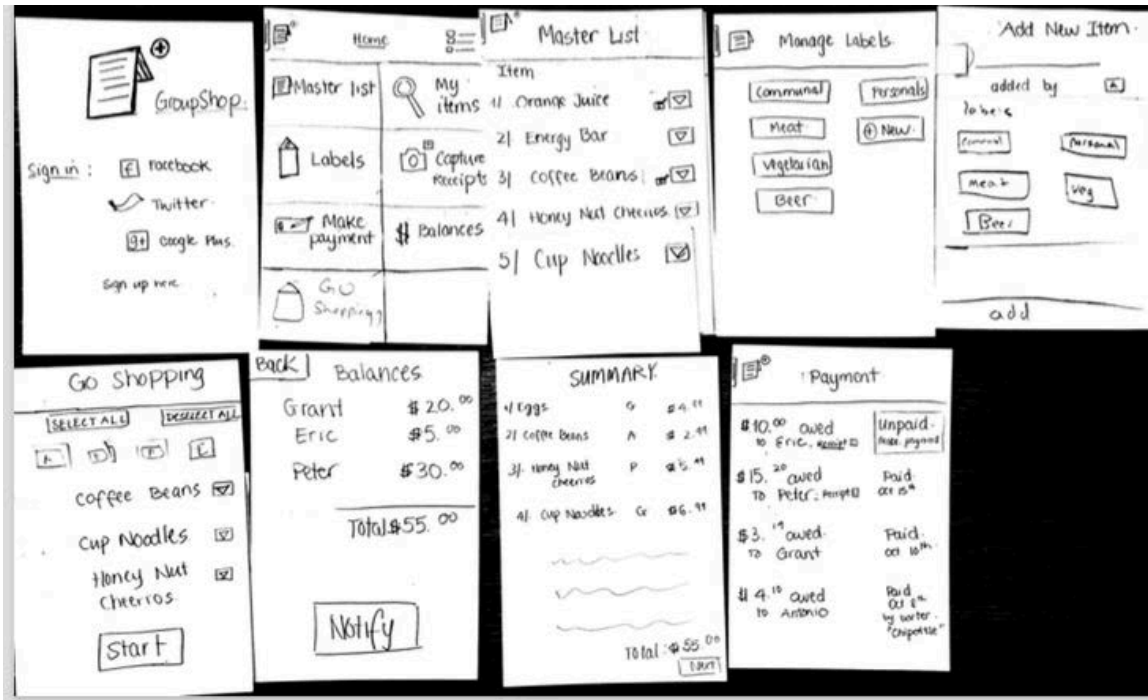 GroupShop.
Sign in :
f Facebook
Twitter.
g+ Google Plus.
Sign up here
Home
Master list
My items
Labels
Capture Receipts
Make payment
$ Balances
Go Shopping
Master List
Item
1/ Orange Juice
2/ Energy Bar
3/ Coffee Beans
4/ Honey Nut Cheerios
5/ Cup Noodles
Manage Labels.
Communal
Personals
Meat
+ New.
Vegetarian
Beer
Add New Item.
added by A
labels
Communal
Personal
Meat
Veg
Beer
add
Go Shopping
SELECT ALL
DESELECT ALL
A
E
Coffee Beans
Cup Noodles
Honey Nut
Cheerros
Start
Back
Balances
Grant $20.00
Eric $5.00
Peter $30.00
Total $55.00
Notify
SUMMARY.
1/ Eggs G $4.99
2/ Coffee Beans A $2.99
3/ Honey Nut P $5.99
Cheerros
4/ Cup Noodles G $6.99
Total: $55.00
Payment
$10.00 owed Unpaid.
to Eric, Receipt Make payment
$15.20 owed Paid.
To Peter, Receipt Oct 15th
$3.19 owed. Paid.
To Grant Oct 10th
$4.10 owed Paid
to Antonio Oct 8th
by barter.
"Chipotle"